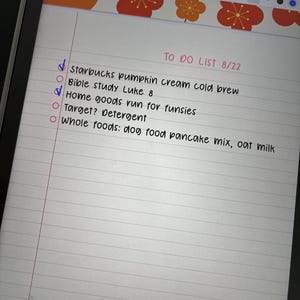 TO DO LIST 8/22
Starbucks pumpkin cream cold brew
Bible study Luke 8
Home goods run for funsies
Target? Detergent
Whole foods: dog food pancake mix, oat milk